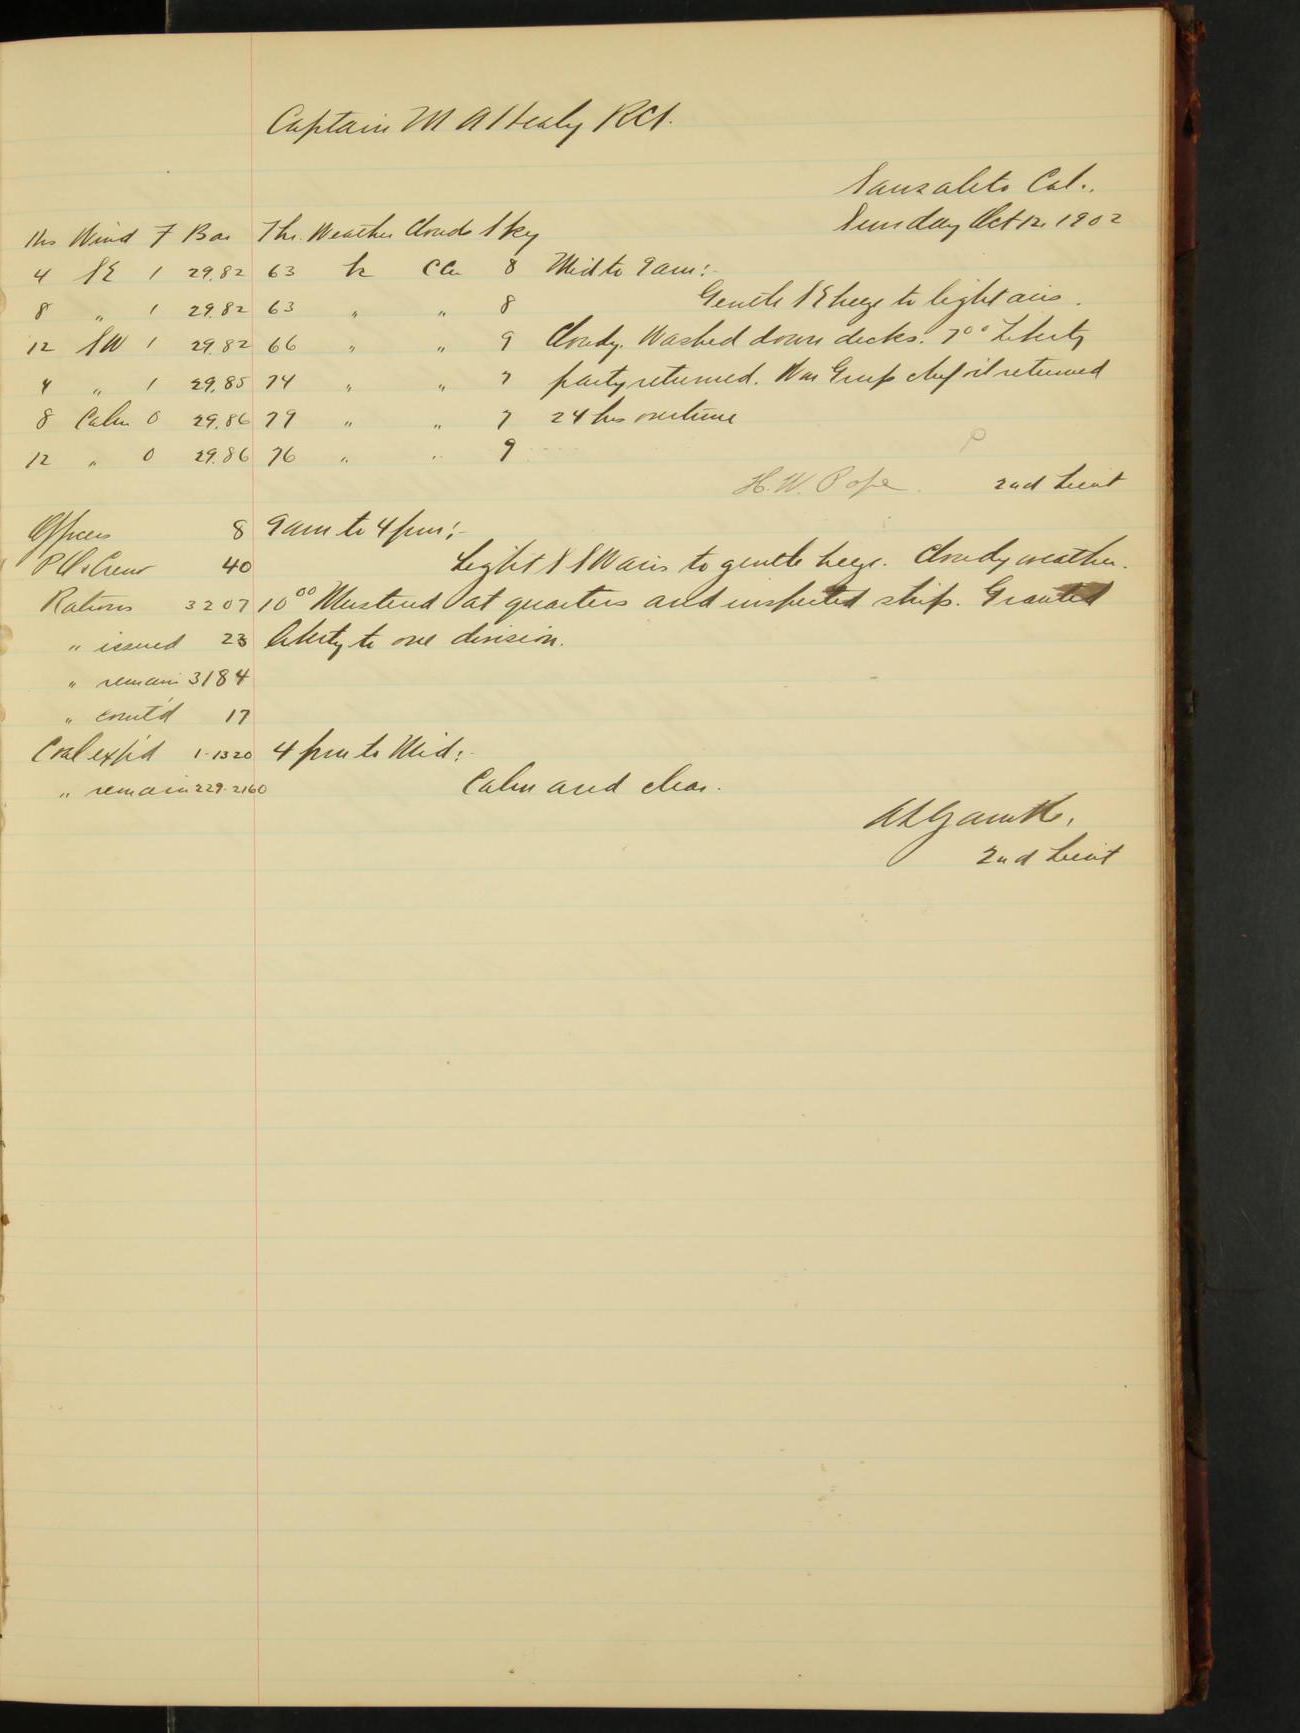 Captain M A Healy RCS.
Sausalito Cal.,
Sunday Oct 12, 1902
Hrs Wind F Bar Thr. Weather Clouds Sky
4 SE 1 29.82 63 bc CCu 8 Mid to 9 am:-
Gentle SE breeze to light airs.
8 " 1 29.82 63 " " 8
12 SW 1 29.82 66 " " 9 Cloudy. Washed down decks. 7 00 Liberty
4 " 1 29.85 74 " " 7 party returned. Wm returned
8 Calm 0 29.86 79 " " 7 24 hrs overtime
12 " 0 29.86 76 " " 9
H. W. Pope. 2nd Lieut
Officers 8 9 am to 4 pm:-
P.O. & Crew 40 Light SSW airs to gentle breeze. Cloudy weather.
Rations 3207 10 00 Mustered at quarters and inspected ship. Granted
" issued 23 liberty to one division.
" remain 3184
" comt'd 17
Coal exp'd 1-1320 4 pm to Mid:-
" remain 229-2160 Calm and clear.
2nd Lieut